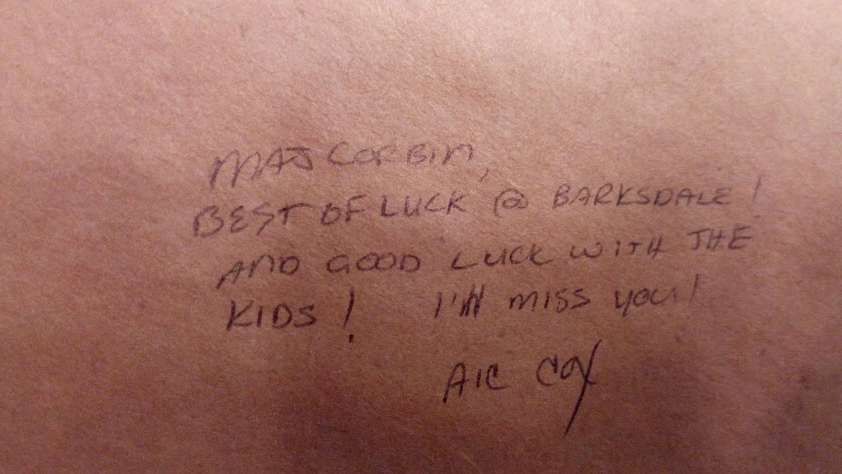 MAJ CORBIN,
BEST OF LUCK @ BARKSDALE!
AND GOOD LUCK WITH THE
KIDS! I'll miss you!
A1C COX